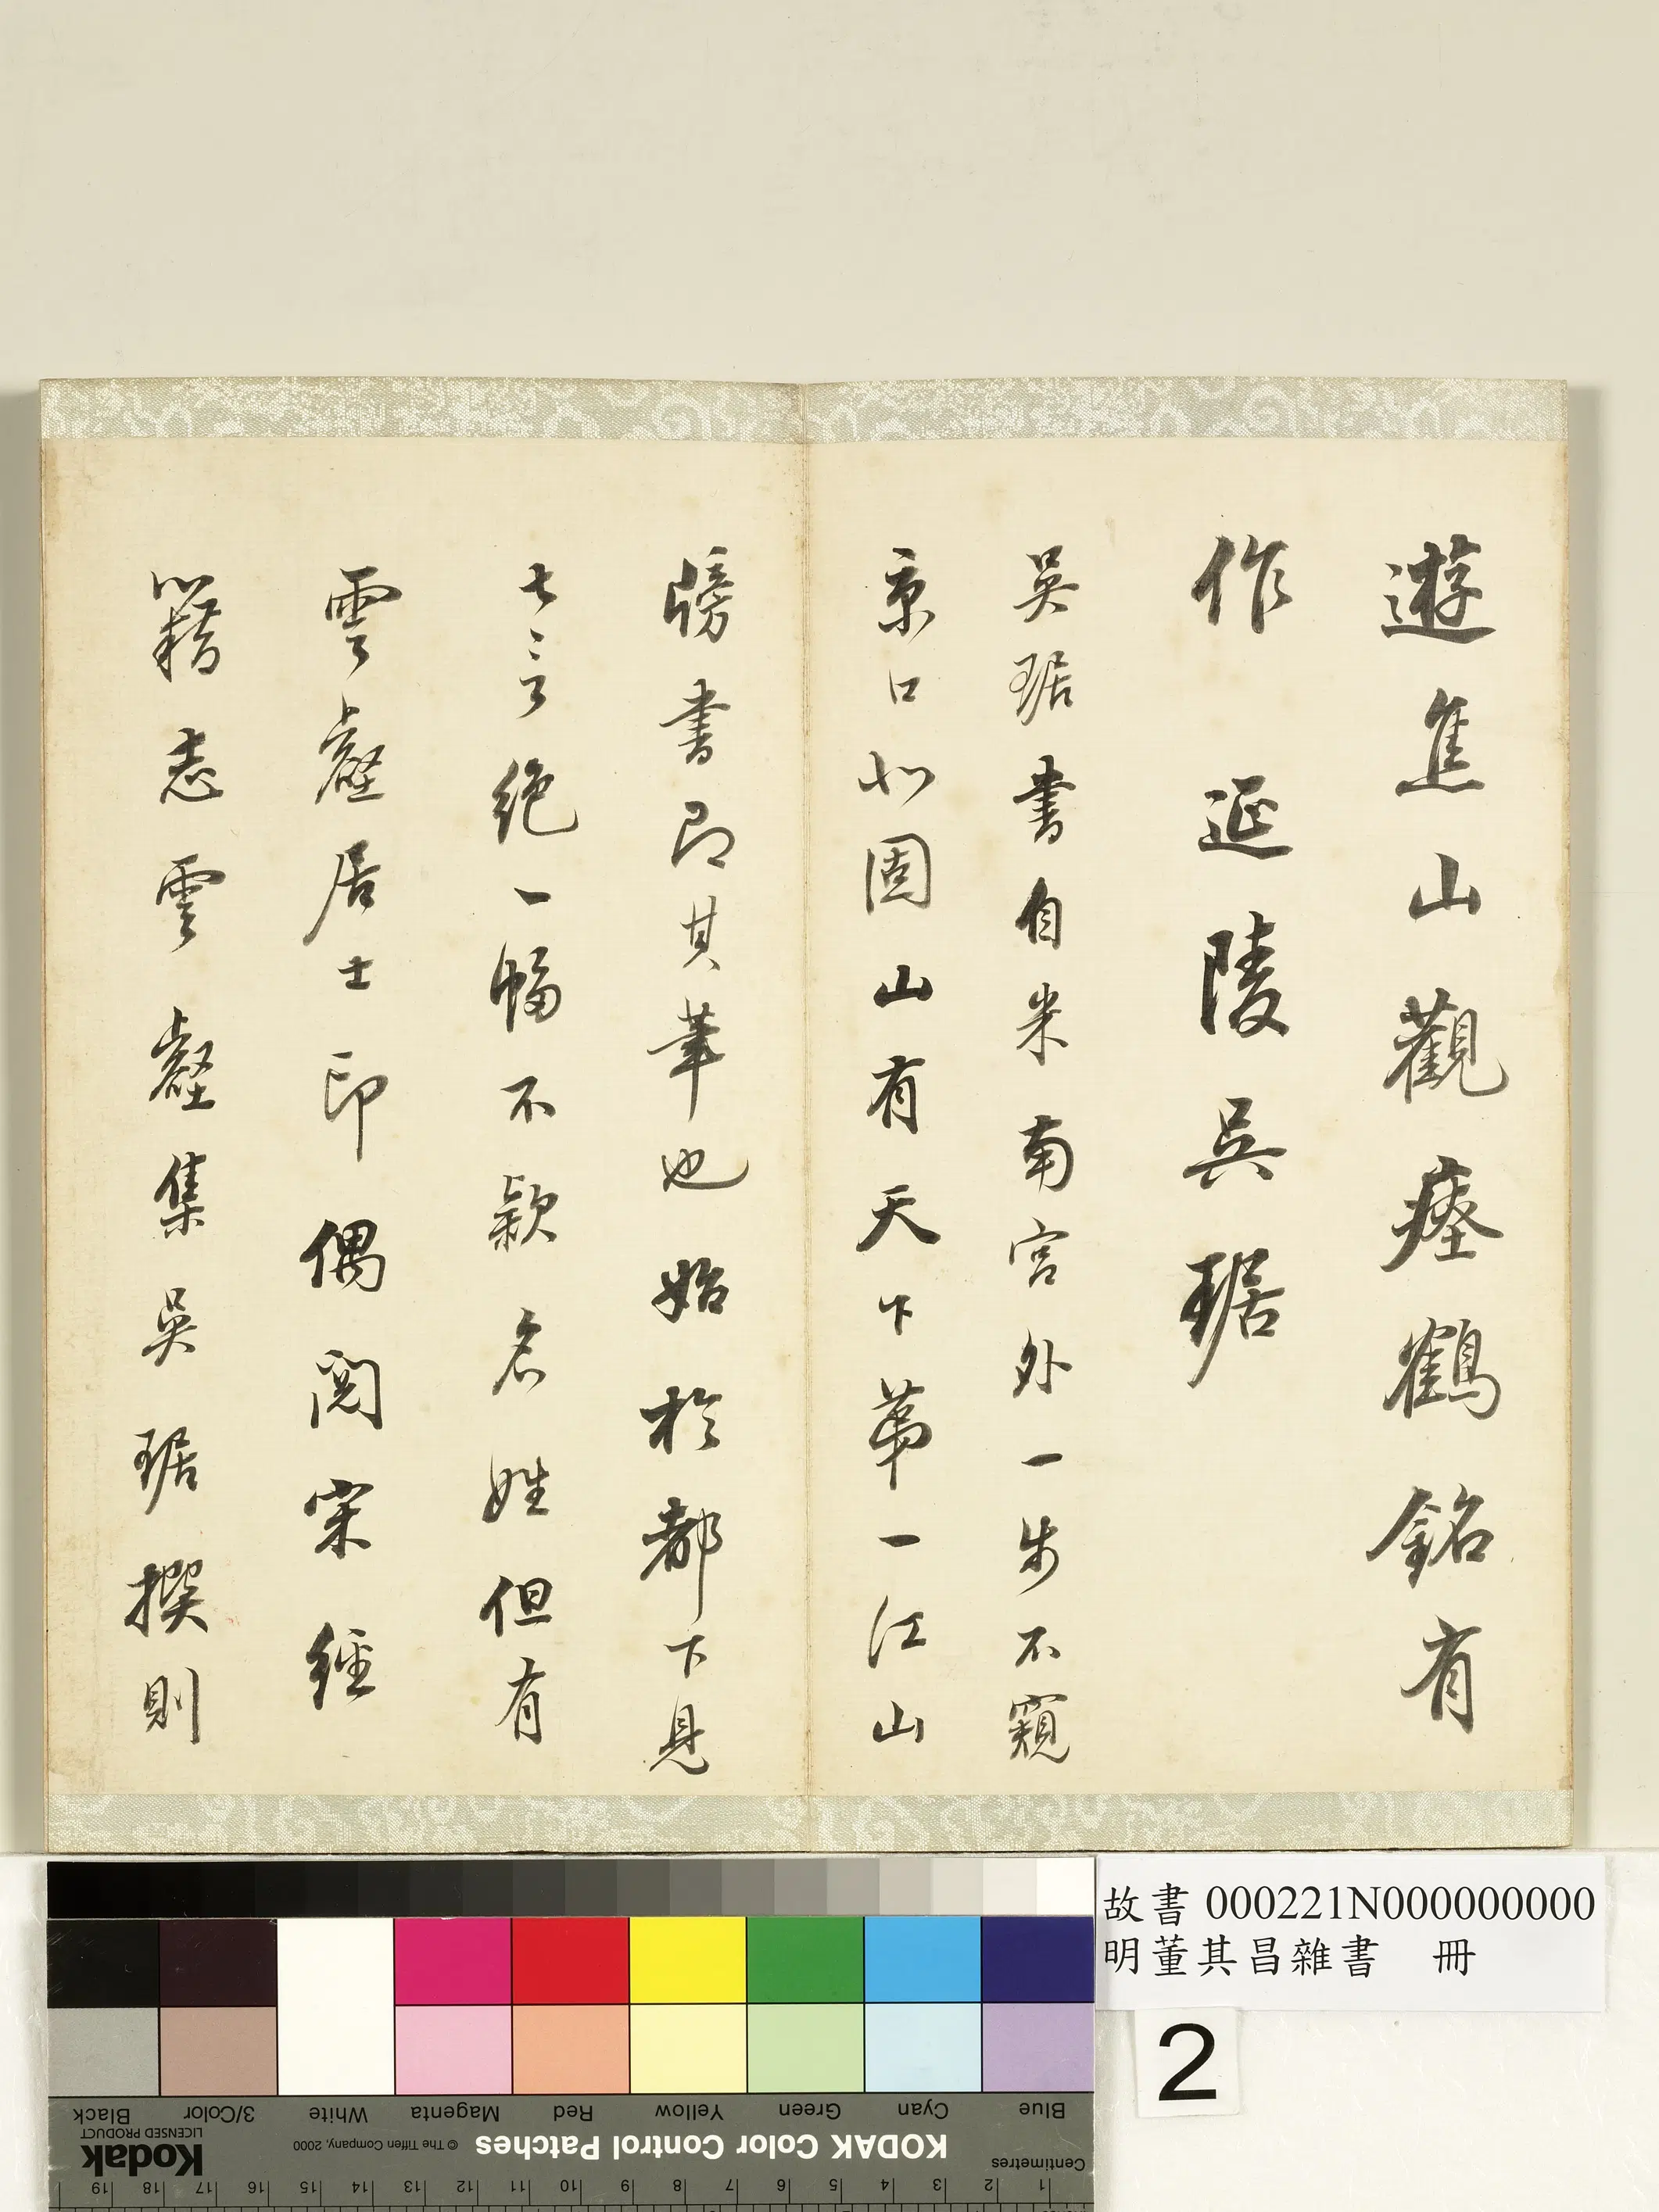 遊焦山觀瘞鶴銘有
作 延陵吳琚
吳琚書自米南宮外一步不窺
京口北固山有天下第一江山
牓書即其筆也始於都下見
七言絕一幅不款名姓但有
雲壑居士印偶閱宋經
籍志雲壑集吳琚撰則
故書 000221N000000000
明董其昌雜書 冊
2
Blue
Cyan
Green
Yellow
Red
Magenta
White
3/Color
Black
KODAK Color Control Patches
© The Tiffen Company, 2000
Kodak
LICENSED PRODUCT
Centimetres
1 2 3 4 5 6 7 8 9 10 11 12 13 14 15 16 17 18 19